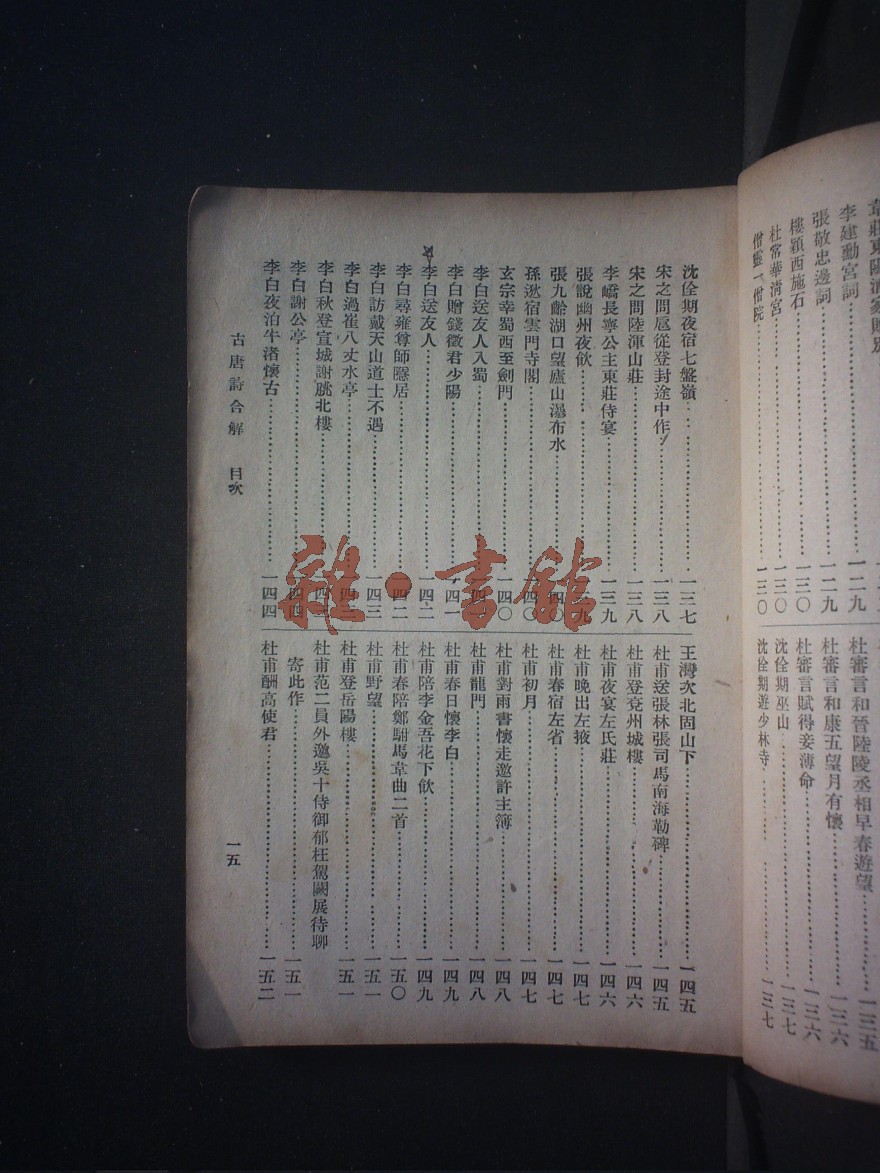 韋莊東陽酒家贈別
李建勳宮詞……一二九
張敬忠邊詞……一二九
樓穎西施石……一三〇
杜常華清宮……一三〇
僧靈一僧院……一三〇
杜審言和晉陵陵丞相早春遊望……一三五
杜審言和康五望月有懷……一三六
杜審言賦得妾薄命……一三六
沈佺期巫山……一三七
沈佺期遊少林寺……一三七
沈佺期夜宿七盤嶺……一三七
宋之問扈從登封途中作……一三八
宋之問陸渾山莊……一三八
李嶠長寧公主東莊侍宴……一三九
張說幽州夜飲……一三九
張九齡湖口望廬山瀑布水……一四〇
孫逖宿雲門寺閣……一四〇
玄宗幸蜀西至劍門……一四〇
李白送友人入蜀……一四一
李白贈錢徵君少陽……一四一
李白送友人……一四二
李白尋雍尊師隱居……一四二
李白訪戴天山道士不遇……一四三
李白過崔八丈水亭……一四三
李白秋登宣城謝脁北樓……一四三
李白謝公亭……一四四
李白夜泊牛渚懷古……一四四
王灣次北固山下……一四五
杜甫送張林張司馬南海勒碑……一四五
杜甫登兗州城樓……一四六
杜甫夜宴左氏莊……一四六
杜甫晚出左掖……一四七
杜甫春宿左省……一四七
杜甫初月……一四七
杜甫對雨書懷走邀許主簿……一四八
杜甫龍門……一四八
杜甫春日懷李白……一四九
杜甫陪李金吾花下飲……一四九
杜甫春陪鄭駙馬韋曲二首……一五〇
杜甫野望……一五一
杜甫登岳陽樓……一五一
杜甫范二員外邈吳十侍御郁枉駕闕展待聊
寄此作……一五一
杜甫酬高使君……一五二
古唐詩合解 目次
一五
雜·書館